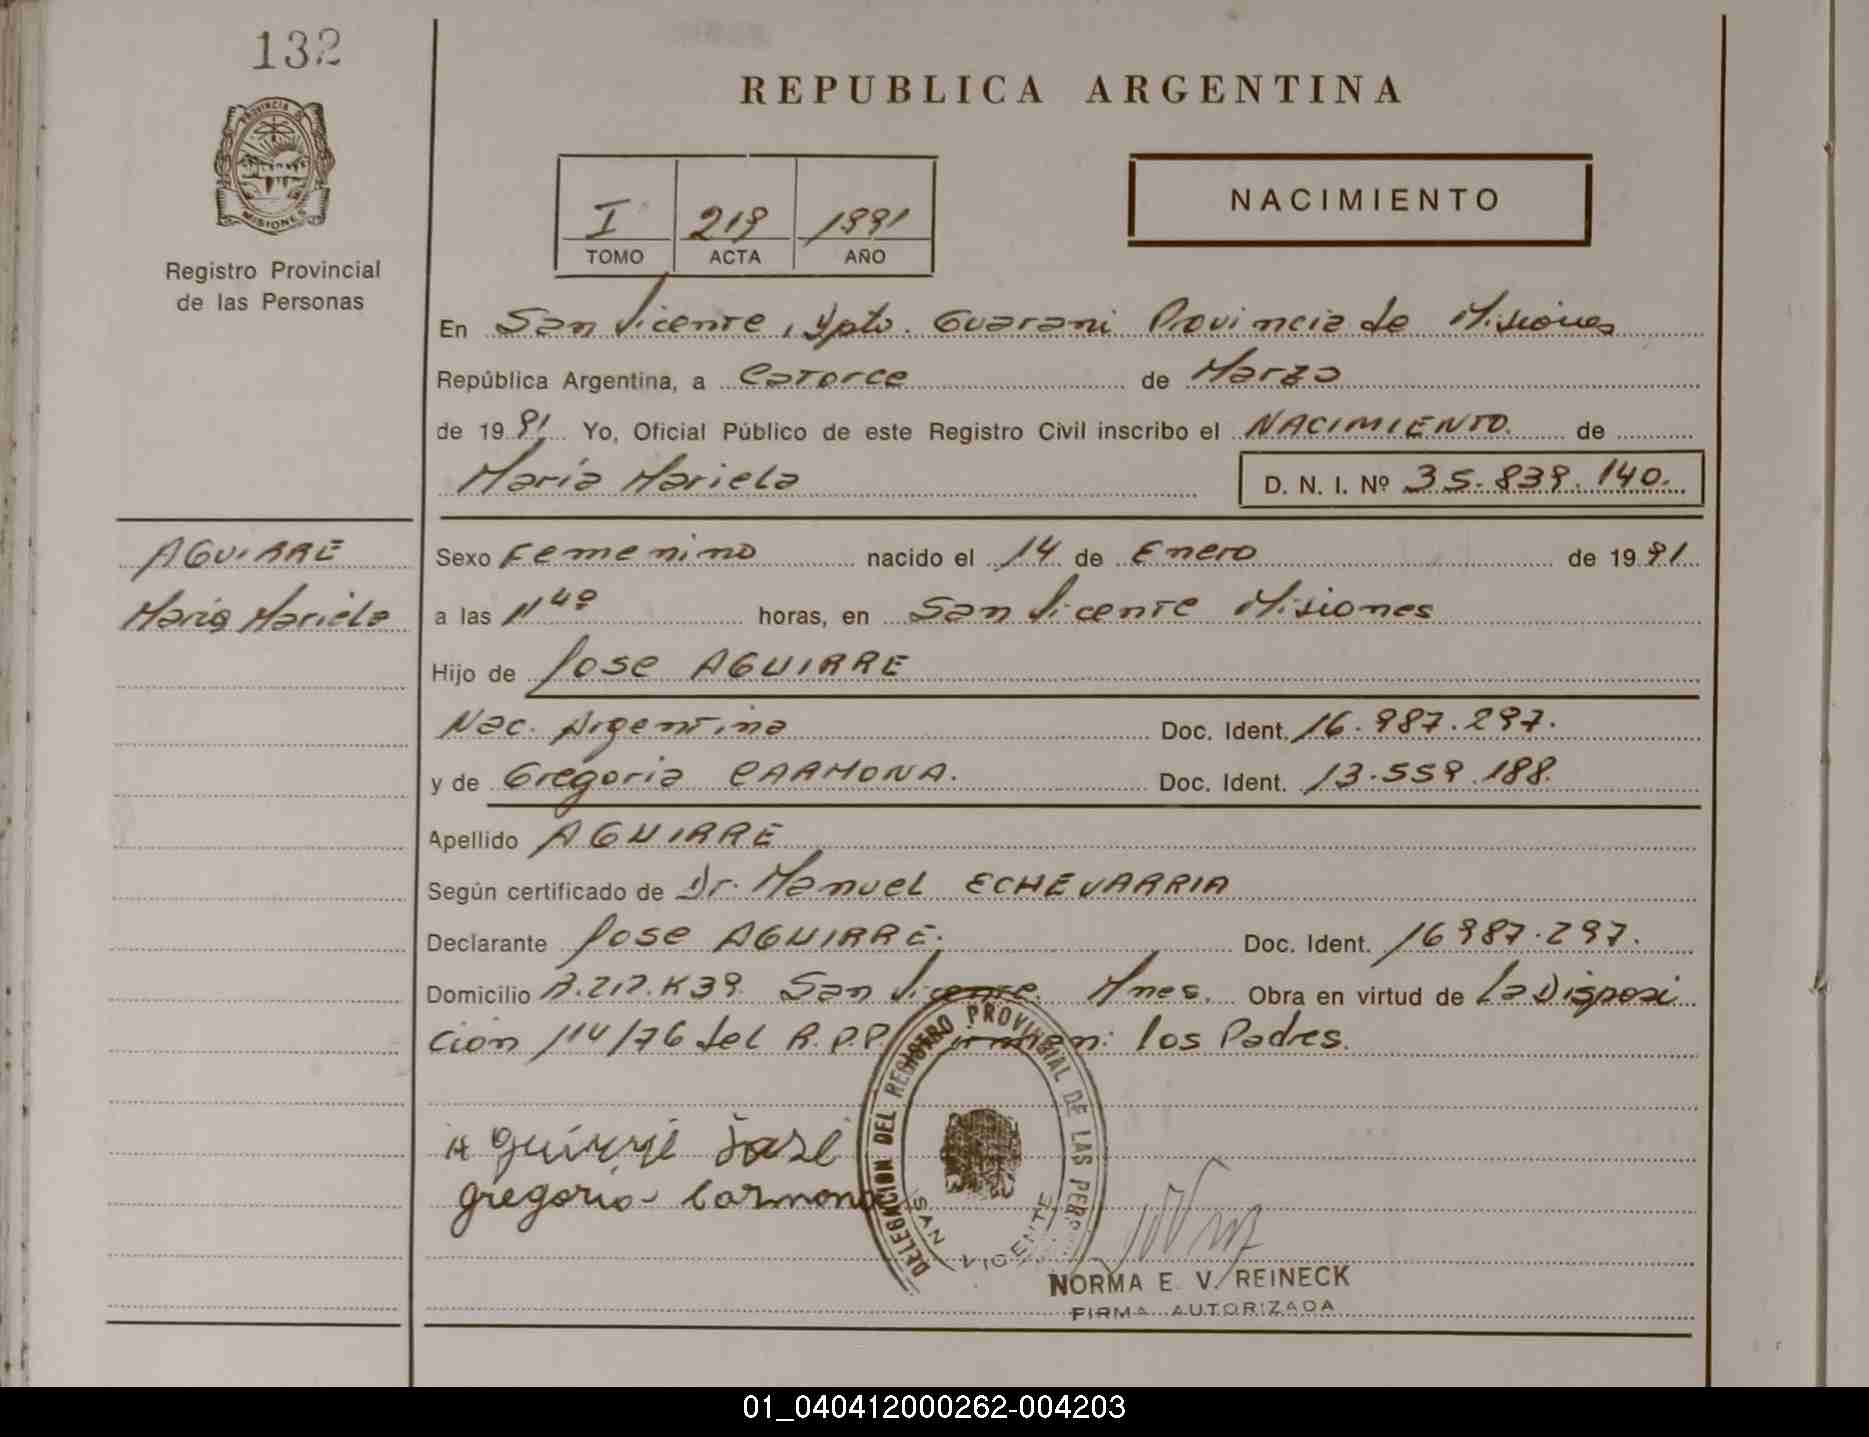 132
REPUBLICA ARGENTINA
PROVINCIA DE
MISIONES
Registro Provincial
de las Personas
I 219 1991
TOMO ACTA AÑO
NACIMIENTO
En San Vicente, Dpto. Guarani Provincia de Misiones
República Argentina, a Catorce de Marzo
de 1991 Yo, Oficial Público de este Registro Civil inscribo el NACIMIENTO de
María Mariela D. N. I. Nº 35.839.140.
AGUIRRE
María Mariela
Sexo Femenino nacido el 14 de Enero de 1991
a las 11 40 horas, en San Vicente Misiones
Hijo de Jose AGUIRRE
Nac. Argentina Doc. Ident. 16.987.297.
y de Gregoria CARMONA. Doc. Ident. 13.559.188.
Apellido AGUIRRE
Según certificado de Dr. Manuel ECHEVARRIA
Declarante Jose AGUIRRE. Doc. Ident. 16987.297.
Domicilio R.212.K39. San Vicente. Mnes. Obra en virtud de La Disposi
ción 114/76 del R.P.P. Firman: los Padres.
Aguirre José
gregoria Carmona
DELEGACION DEL REGISTRO PROVINCIAL DE LAS PERS
SAN VICENTE
NORMA E. V. REINECK
FIRMA AUTORIZADA
01_040412000262-004203